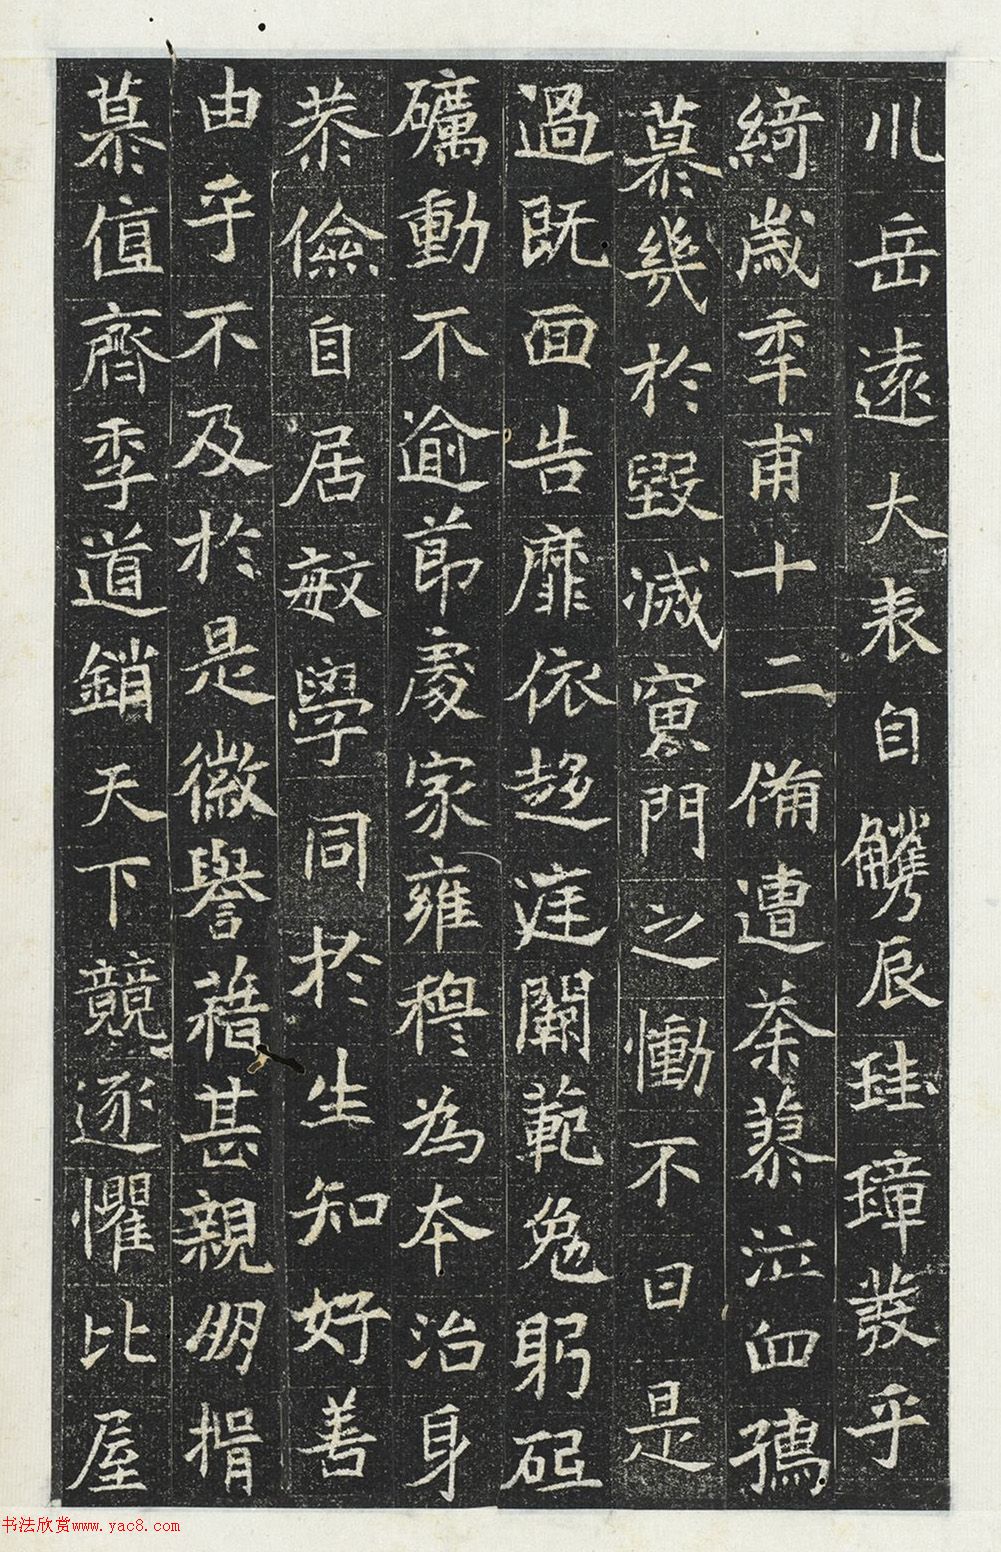 川岳遠大表自觿辰珪璋發乎
綺歲年甫十二備遭荼蓼泣血孺
慕幾於毀滅門之慟不曰是
過既面告靡依趍庭闕範勉躬砥
礪動不逾節處家雍穆為本治身
恭儉自居敏學同於生知好善
由乎不及於是徽譽藉甚親朋揖
慕值齊季道銷天下競逐懼比屋
书法欣赏www.yac8.com